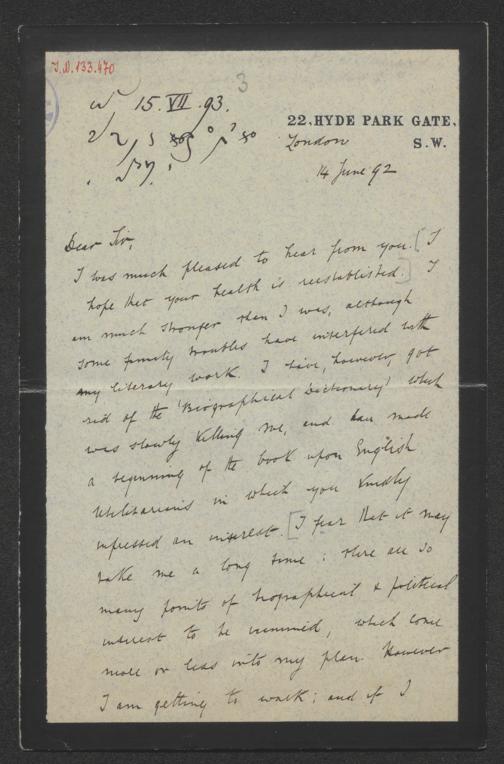 I.N. 133.470
3
15.VII.93.
22, HYDE PARK GATE,
London S.W.
14 June 92
Dear Sir,
I was much pleased to hear from you. [I
hope that your health is reestablished.] I
am much stronger than I was, although
some family troubles have interfered with
my literary work. I have, however, got
rid of the 'Biographical Dictionary' which
was slowly killing me, and have made
a beginning of the book upon English
Utilitarians in which you kindly
expressed an interest. [I fear that it may
take me a long time: there are so
many points of biographical & political
interest to be examined, which come
more or less into my plan. However
I am getting to work; and if I